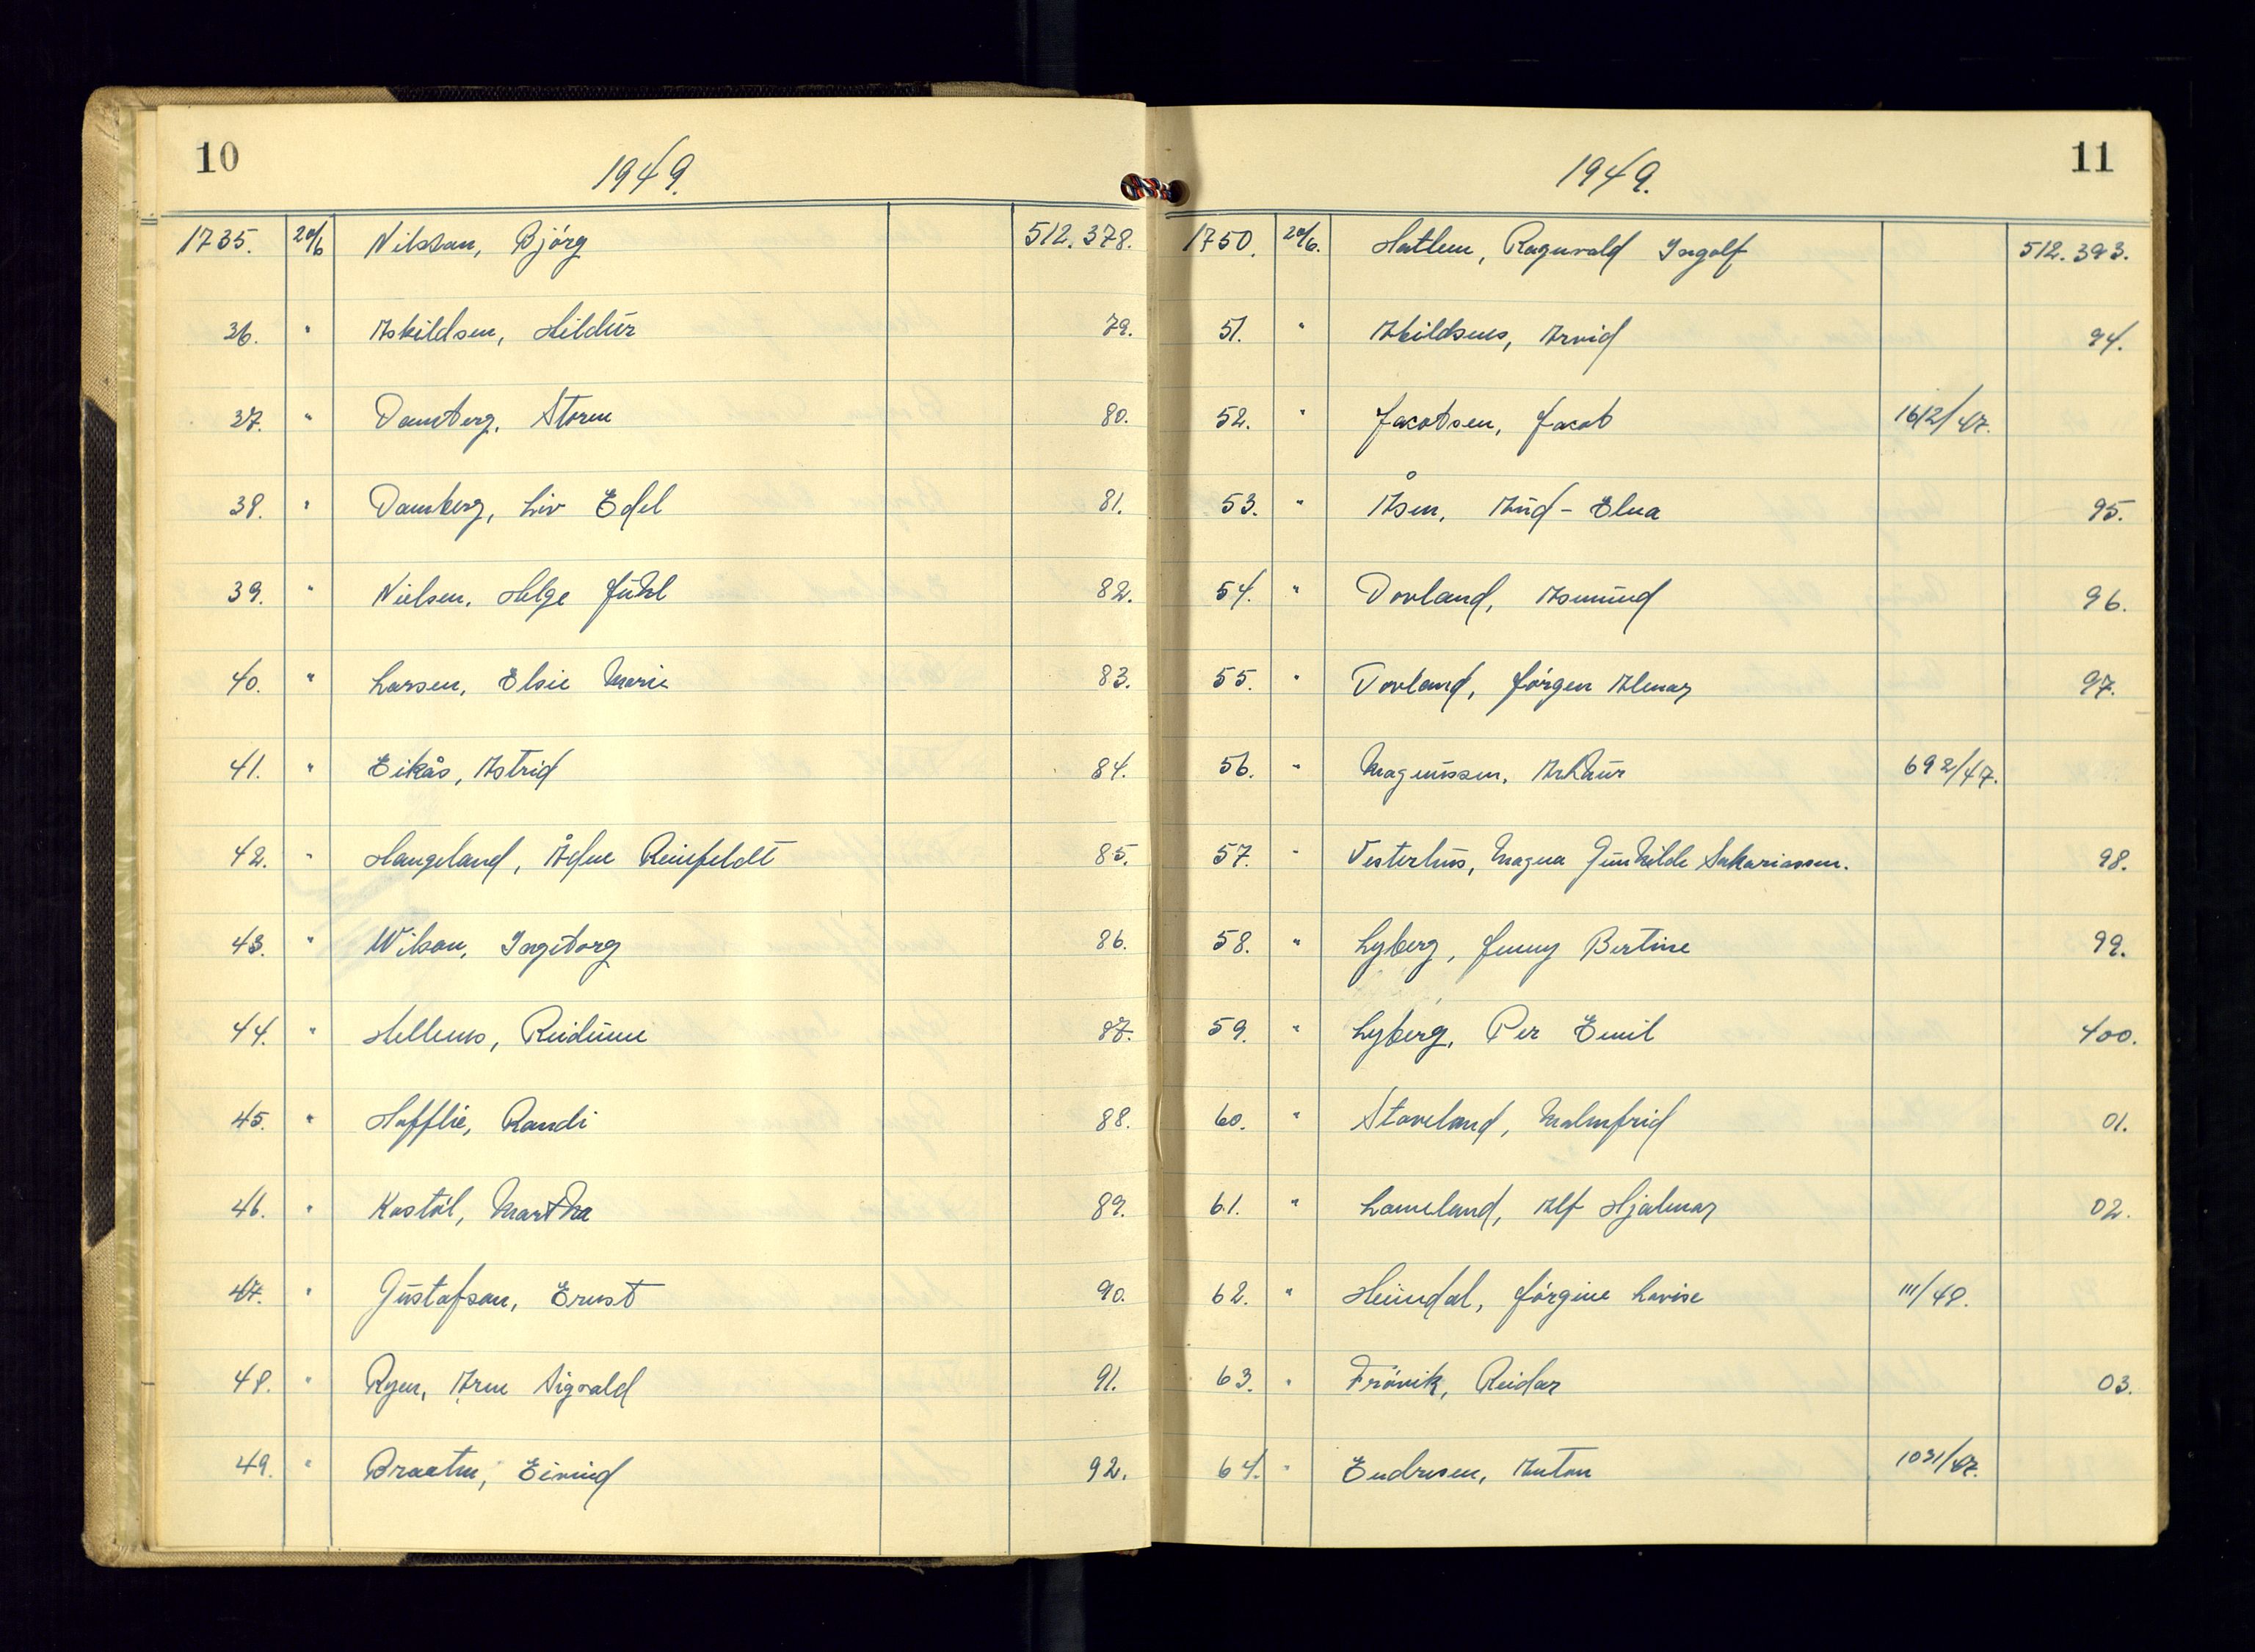 10
1949.
1735. 20/6 Nilsson, Bjørg 512.378.
36. " Askildsen, Hildur 79.
37. " Damberg, Storm 80.
38. " Damberg, Liv Edel 81.
39. " Nielsen, Helge Juhl 82.
40. " Larsen, Elsie Marie 83.
41. " Eikås, Astrid 84.
42. " Haugeland, Ådne Reinfeldt 85.
43. " Wilson, Ingeborg 86.
44. " Hellenes, Reidunn 87.
45. " Randi 88.
46. " Kostøl, Martha 89.
47. " Gustafson, Ernst 90.
48. " Ryen, Arne Sigvald 91.
49. " Braaten, Eivind 92.
11
1949.
1750. 20/6. Hatlem, Ragnvald Ingolf 512.393.
51. " Arvid 94.
52. " Jacobsen, Jacob 1612/47.
53. " Åsen, Aud-Elna 95.
54. " Dovland, Asmund 96.
55. " Dovland, Jørgen Almar 97.
56. " Magnussen, Arthur 692/47.
57. " Vesterhus, Magna Gunhilde Sakariassen. 98.
58. " Lyberg, Jenny Bertine 99.
59. " Lyberg, Per Emil 400.
60. " Staveland, Malmfrid 01.
61. " Laueland, Alf Hjalmar 02.
62. " Heimdal, Jørgine Lovise 111/48.
63. " Frøvik, Reidar 03.
64. " Endresen, Anton 1031/47.